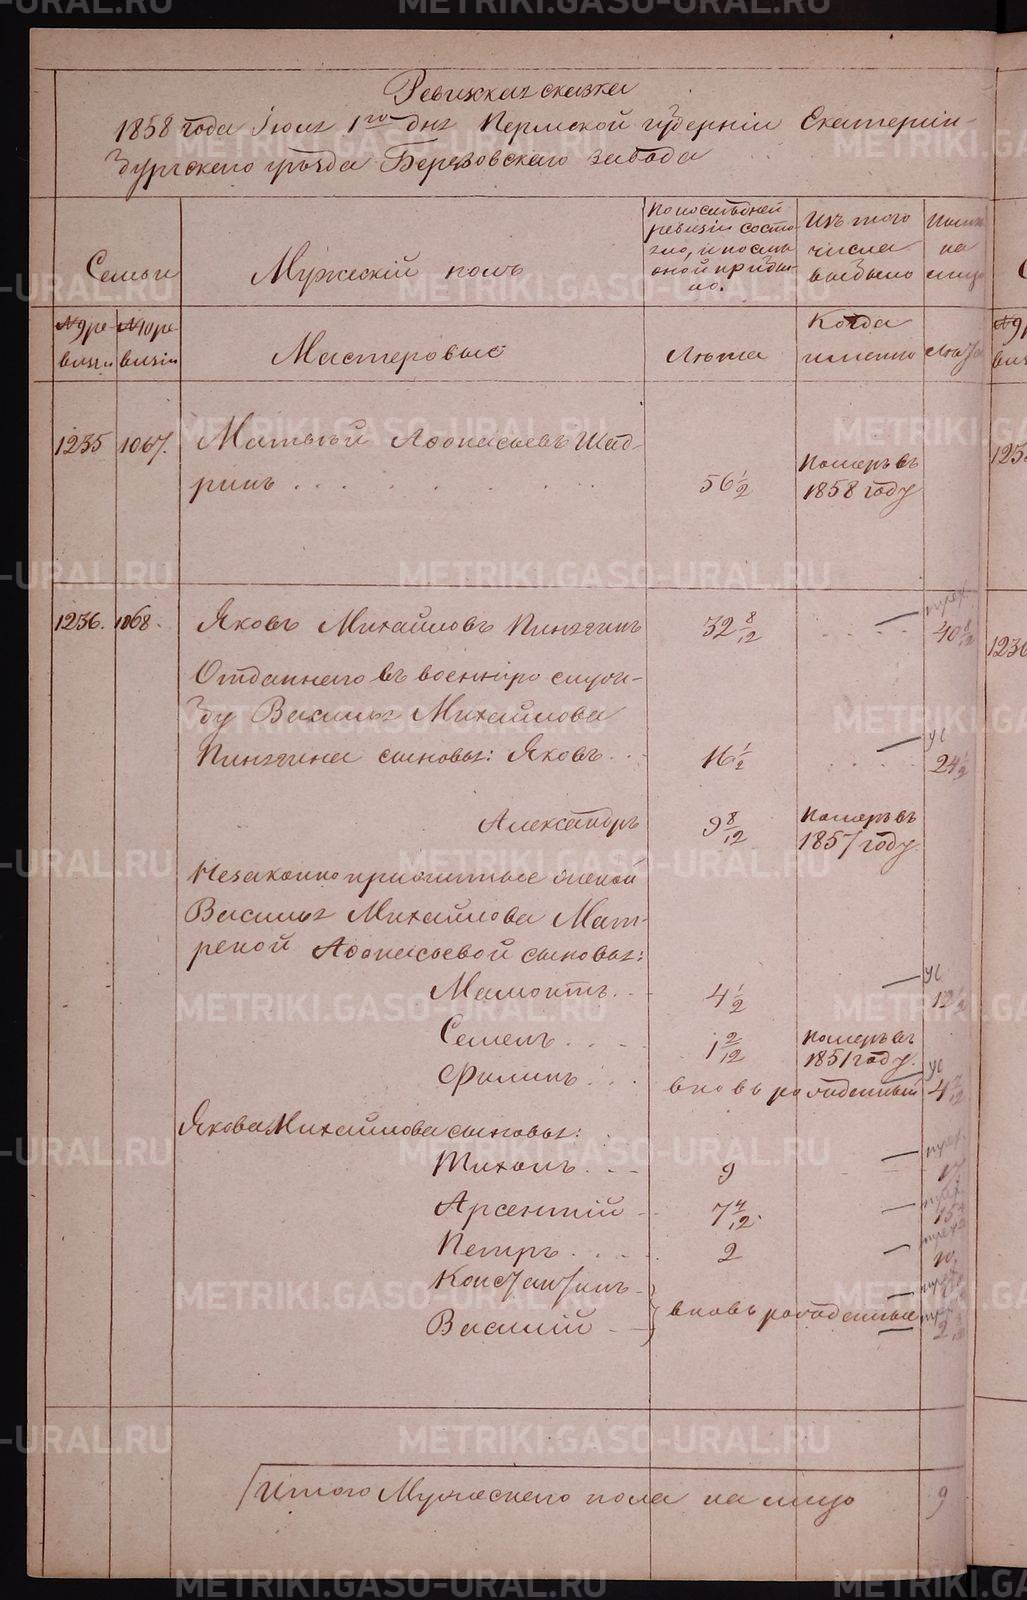 Ревизская сказка
1858 года Июля 1го дня Пермской губерніи Екатерин-
бургскаго уѣзда Березовскаго завода
Семьи
Мужескій полъ
По последней
ревизіи состо-
яло, и после
оной прибы-
ло.
Изъ того
числа
выбыло
на
лицо
№9 ре-
визіи
№10 ре-
визіи
Мастеровые
Лѣта
Когда
именно
Лѣта
1235
1067.
Матвѣй Афонасьевъ Шад-
ринъ
56 1/2
Померъ въ
1858 году
1236.
1068.
Яковъ Михайловъ Пинягинъ
32 8/12
40 8/12
Отданнаго въ военную служ-
бу Василья Михайлова
Пинягина сыновья: Яковъ
16 1/2
24 1/2
Александръ
9 8/12
Померъ въ
1857 году
Незаконно прижитые женой
Василья Михайлова Мат-
реной Афонасьевой сыновья:
Мамонтъ
4 1/2
12 1/2
Семенъ
1 2/12
Померъ въ
1851 году.
Филипъ
вновь рожденный
Якова Михайлова сыновья:
Тихонъ
9
17
Арсентій
7 4/12.
15 4/12
Петръ
2
10
Константинъ
Василій
вновь рожденные
Итого Мужескаго пола на лицо
9
METRIKI.GASO-URAL.RU